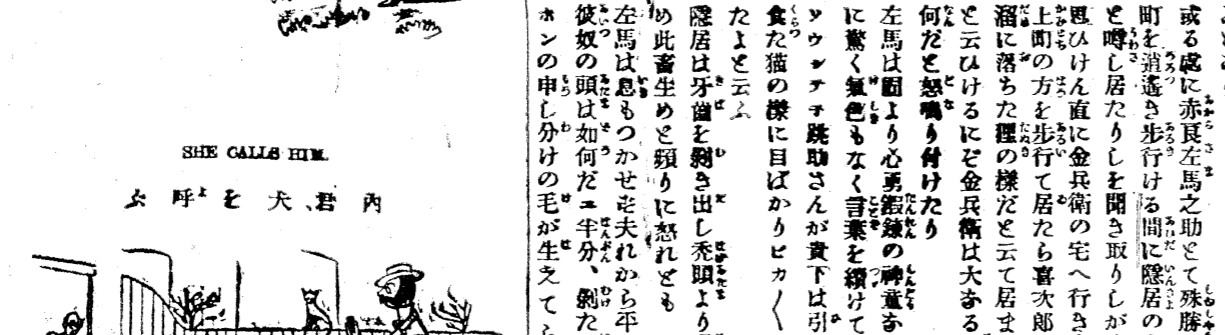 或る處に赤頁左馬之助とて殊勝
町を逍遙き歩行ける間に隱居の
と噂し居たりしを聞き取りしが
思ひけん直に金兵衛の宅へ行き
上町の方を歩行て居たら喜次郎
溜に落ちた狸の樣だと云て居ま
と云ひけるにぞ金兵衛は大なる
何だと怒鳴り付けたり
左馬は固より心勇鍜錬の神童な
に驚く氣色もなく言葉を續けて
ソウシテ子跳助さんが貴下は引
食た猫の樣に目ばかりピカ〱
たよと云ふ
隱居は牙齒を剝き出し禿頭より
め此畜生めと頻りに怒れども
左馬は息もつかせを夫れから平
彼奴の頭は如何だエ半分、剝た
ホンの申し分けの毛が生えて
SHE CALLS HIM.
內君、犬を呼ぶ